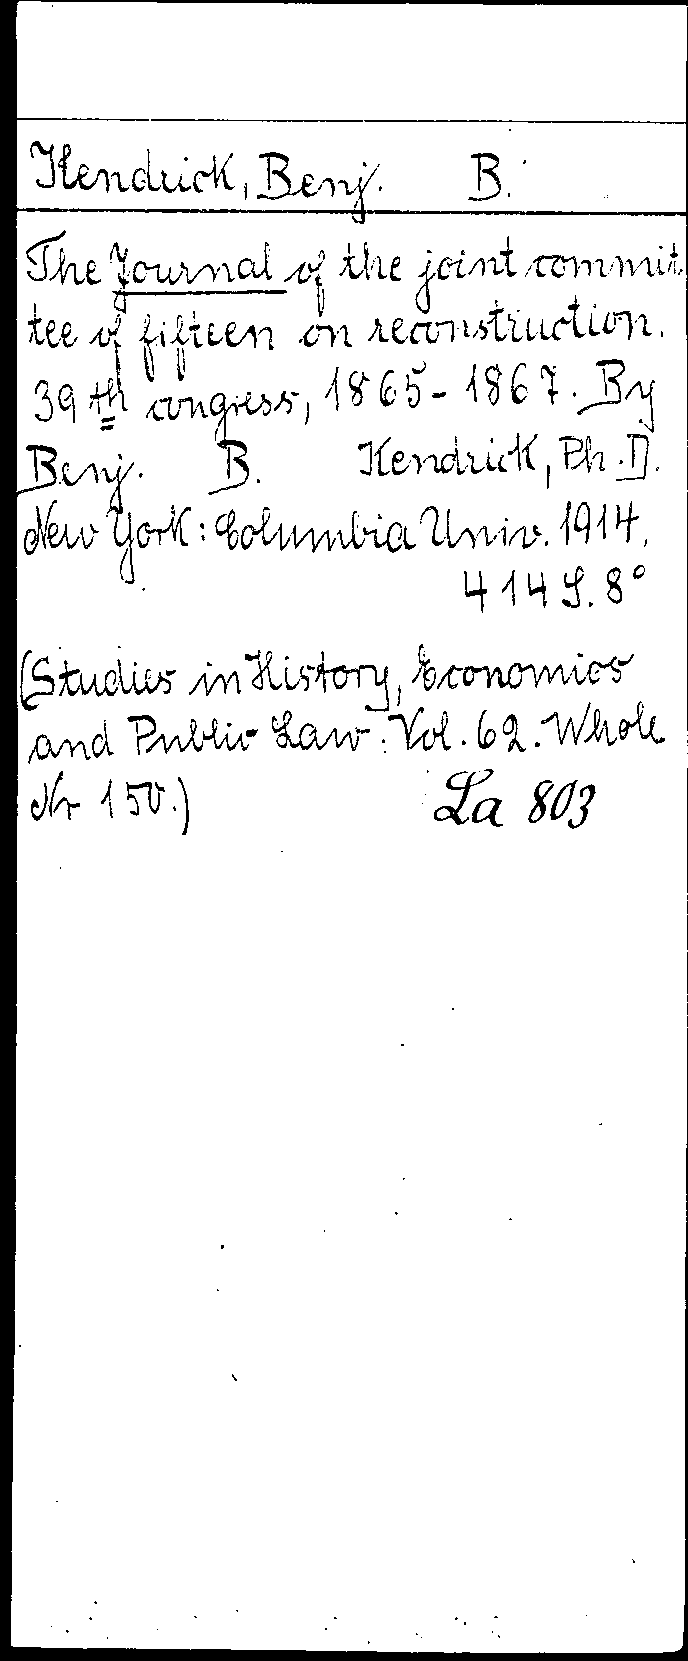 Kendrick, Benj. B.
The Journal of the joint commit
tee of fifteen on reconstruction.
39th congress, 1865-1867. By
Benj. B. Kendrick, Ph.D.
New York: Columbia Univ. 1914.
414 S. 8°
(Studies in History, Economics
and Public Law: Vol. 62. Whole
Nr 150.)
La 803